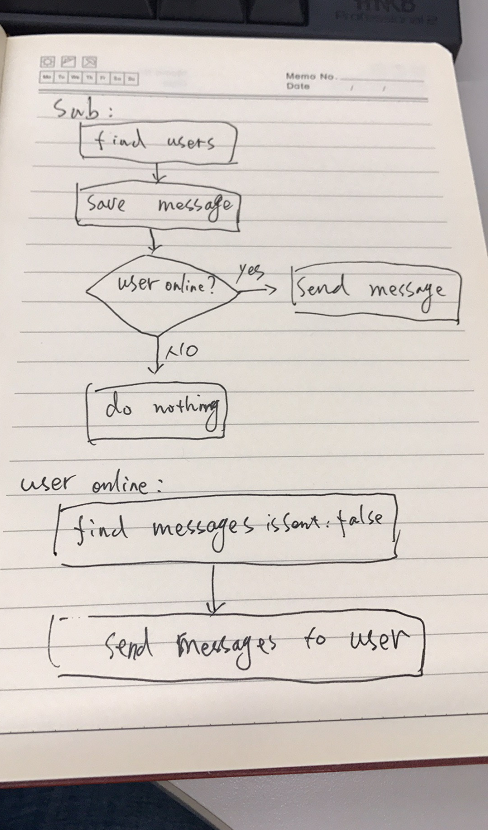 Memo No.
Date / /
Mo Tu We Th Fr Sa Su
Sub:
find users
save message
user online?
yes
Send message
NO
do nothing
user online:
find messages isSent: false
send messages to user